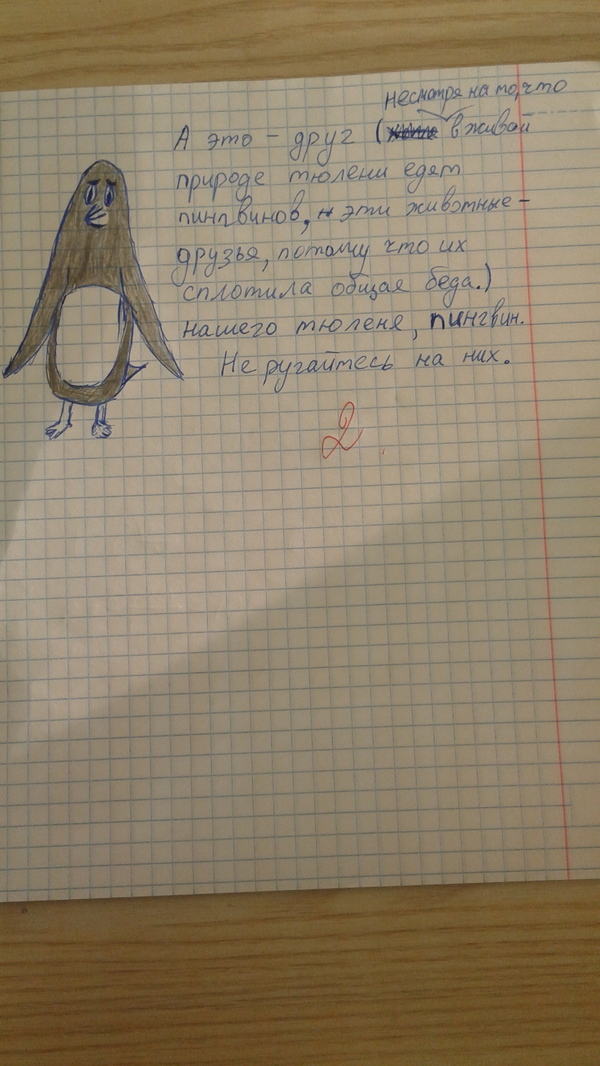 несмотря на то, что
А это - друг ( в живой
природе тюлени едят
пингвинов, эти животные -
друзья, потому что их
сплотила общая беда.)
нашего тюленя, пингвин.
Не ругайтесь на них.
2